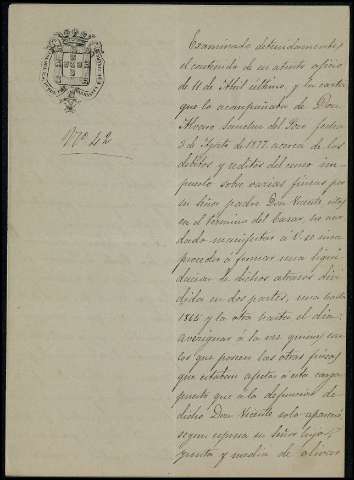 Nº 42
Examinado detenidamente
el contenido de su atento oficio
de 11 de Abril último, y la carta
que lo acompañaba de Don
Alvaro Sanchez del Pozo fecha
3 de Agosto de 1877 acerca de los
débitos y reditos del censo im-
puesto sobre varias fincas por
su Señor padre Don Vicente
en el término del Casar, he acor
dado manifestar á V. se sirva
proceder á formar una liqui
dacion de dichos atrasos divi
dida en dos partes, una hasta
1864 y la otra hasta el dia:
averiguar á la vez quienes
que poseen las otras fincas
que estaban afectas á esta carga
puesto que á la defuncion de
dicho Don Vicente solo aparecia
segun expresa su Señor hijo,
y media de olivar